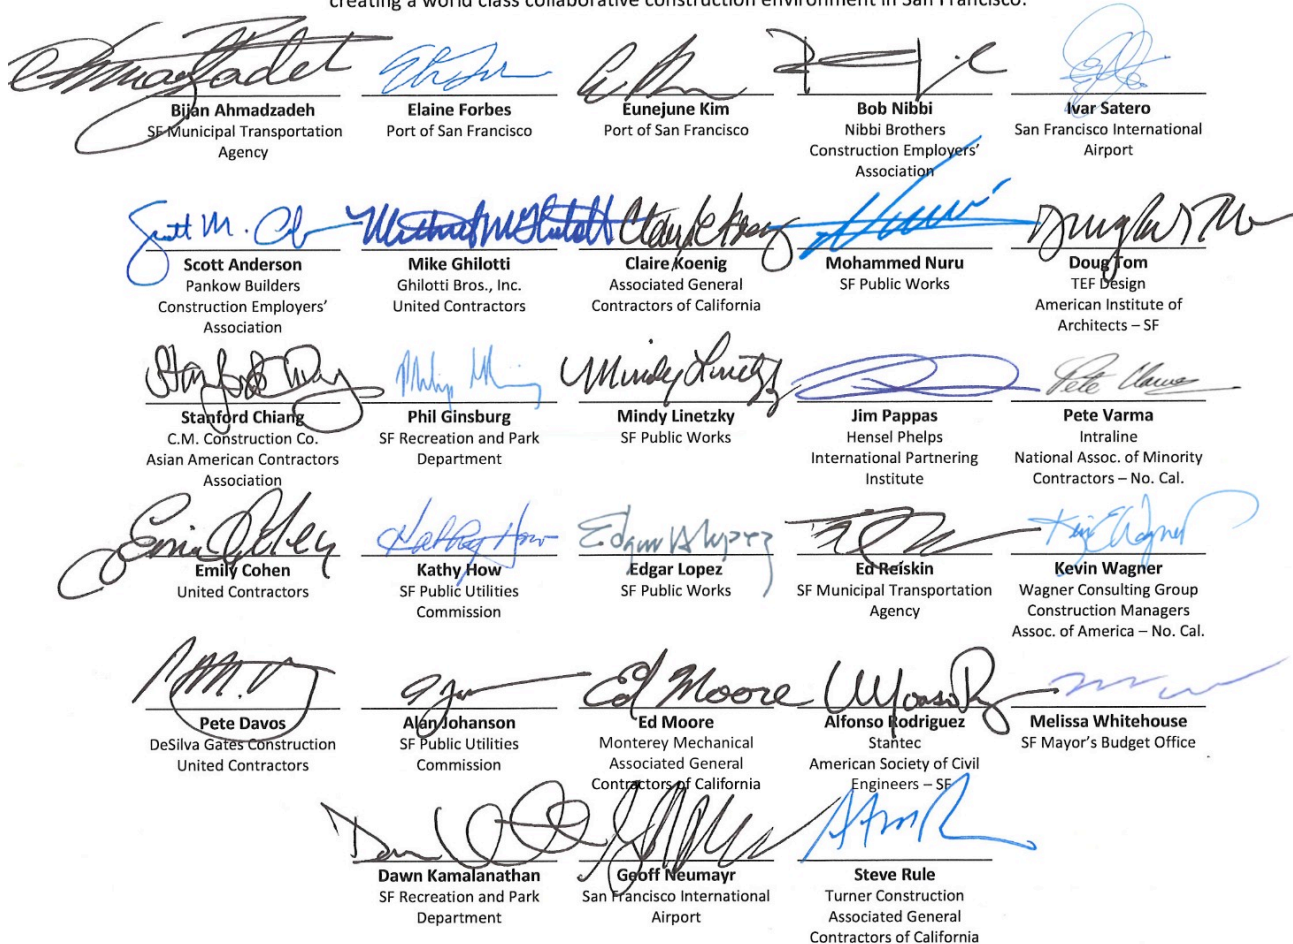 creating a world class collaborative construction environment in San Francisco.
Bijan Ahmadzadeh
SF Municipal Transportation
Agency
Elaine Forbes
Port of San Francisco
Eunejune Kim
Port of San Francisco
Bob Nibbi
Nibbi Brothers
Construction Employers'
Association
Ivar Satero
San Francisco International
Airport
Scott Anderson
Pankow Builders
Construction Employers'
Association
Mike Ghilotti
Ghilotti Bros., Inc.
United Contractors
Claire Koenig
Associated General
Contractors of California
Mohammed Nuru
SF Public Works
Doug Tom
TEF Design
American Institute of
Architects – SF
Stanford Chiang
C.M. Construction Co.
Asian American Contractors
Association
Phil Ginsburg
SF Recreation and Park
Department
Mindy Linetzky
Mindy Linetzky
SF Public Works
Jim Pappas
Hensel Phelps
International Partnering
Institute
Pete Varma
Intraline
National Assoc. of Minority
Contractors – No. Cal.
Emily Cohen
United Contractors
Kathy How
Kathy How
SF Public Utilities
Commission
Edgar Lopez
SF Public Works
Ed Reiskin
SF Municipal Transportation
Agency
Kevin Wagner
Wagner Consulting Group
Construction Managers
Assoc. of America – No. Cal.
Pete Davos
DeSilva Gates Construction
United Contractors
Alan Johanson
SF Public Utilities
Commission
Ed Moore
Ed Moore
Monterey Mechanical
Associated General
Contractors of California
Alfonso Rodriguez
Stantec
American Society of Civil
Engineers – SF
Melissa Whitehouse
SF Mayor's Budget Office
Dawn Kamalanathan
SF Recreation and Park
Department
Geoff Neumayr
San Francisco International
Airport
Steve Rule
Turner Construction
Associated General
Contractors of California